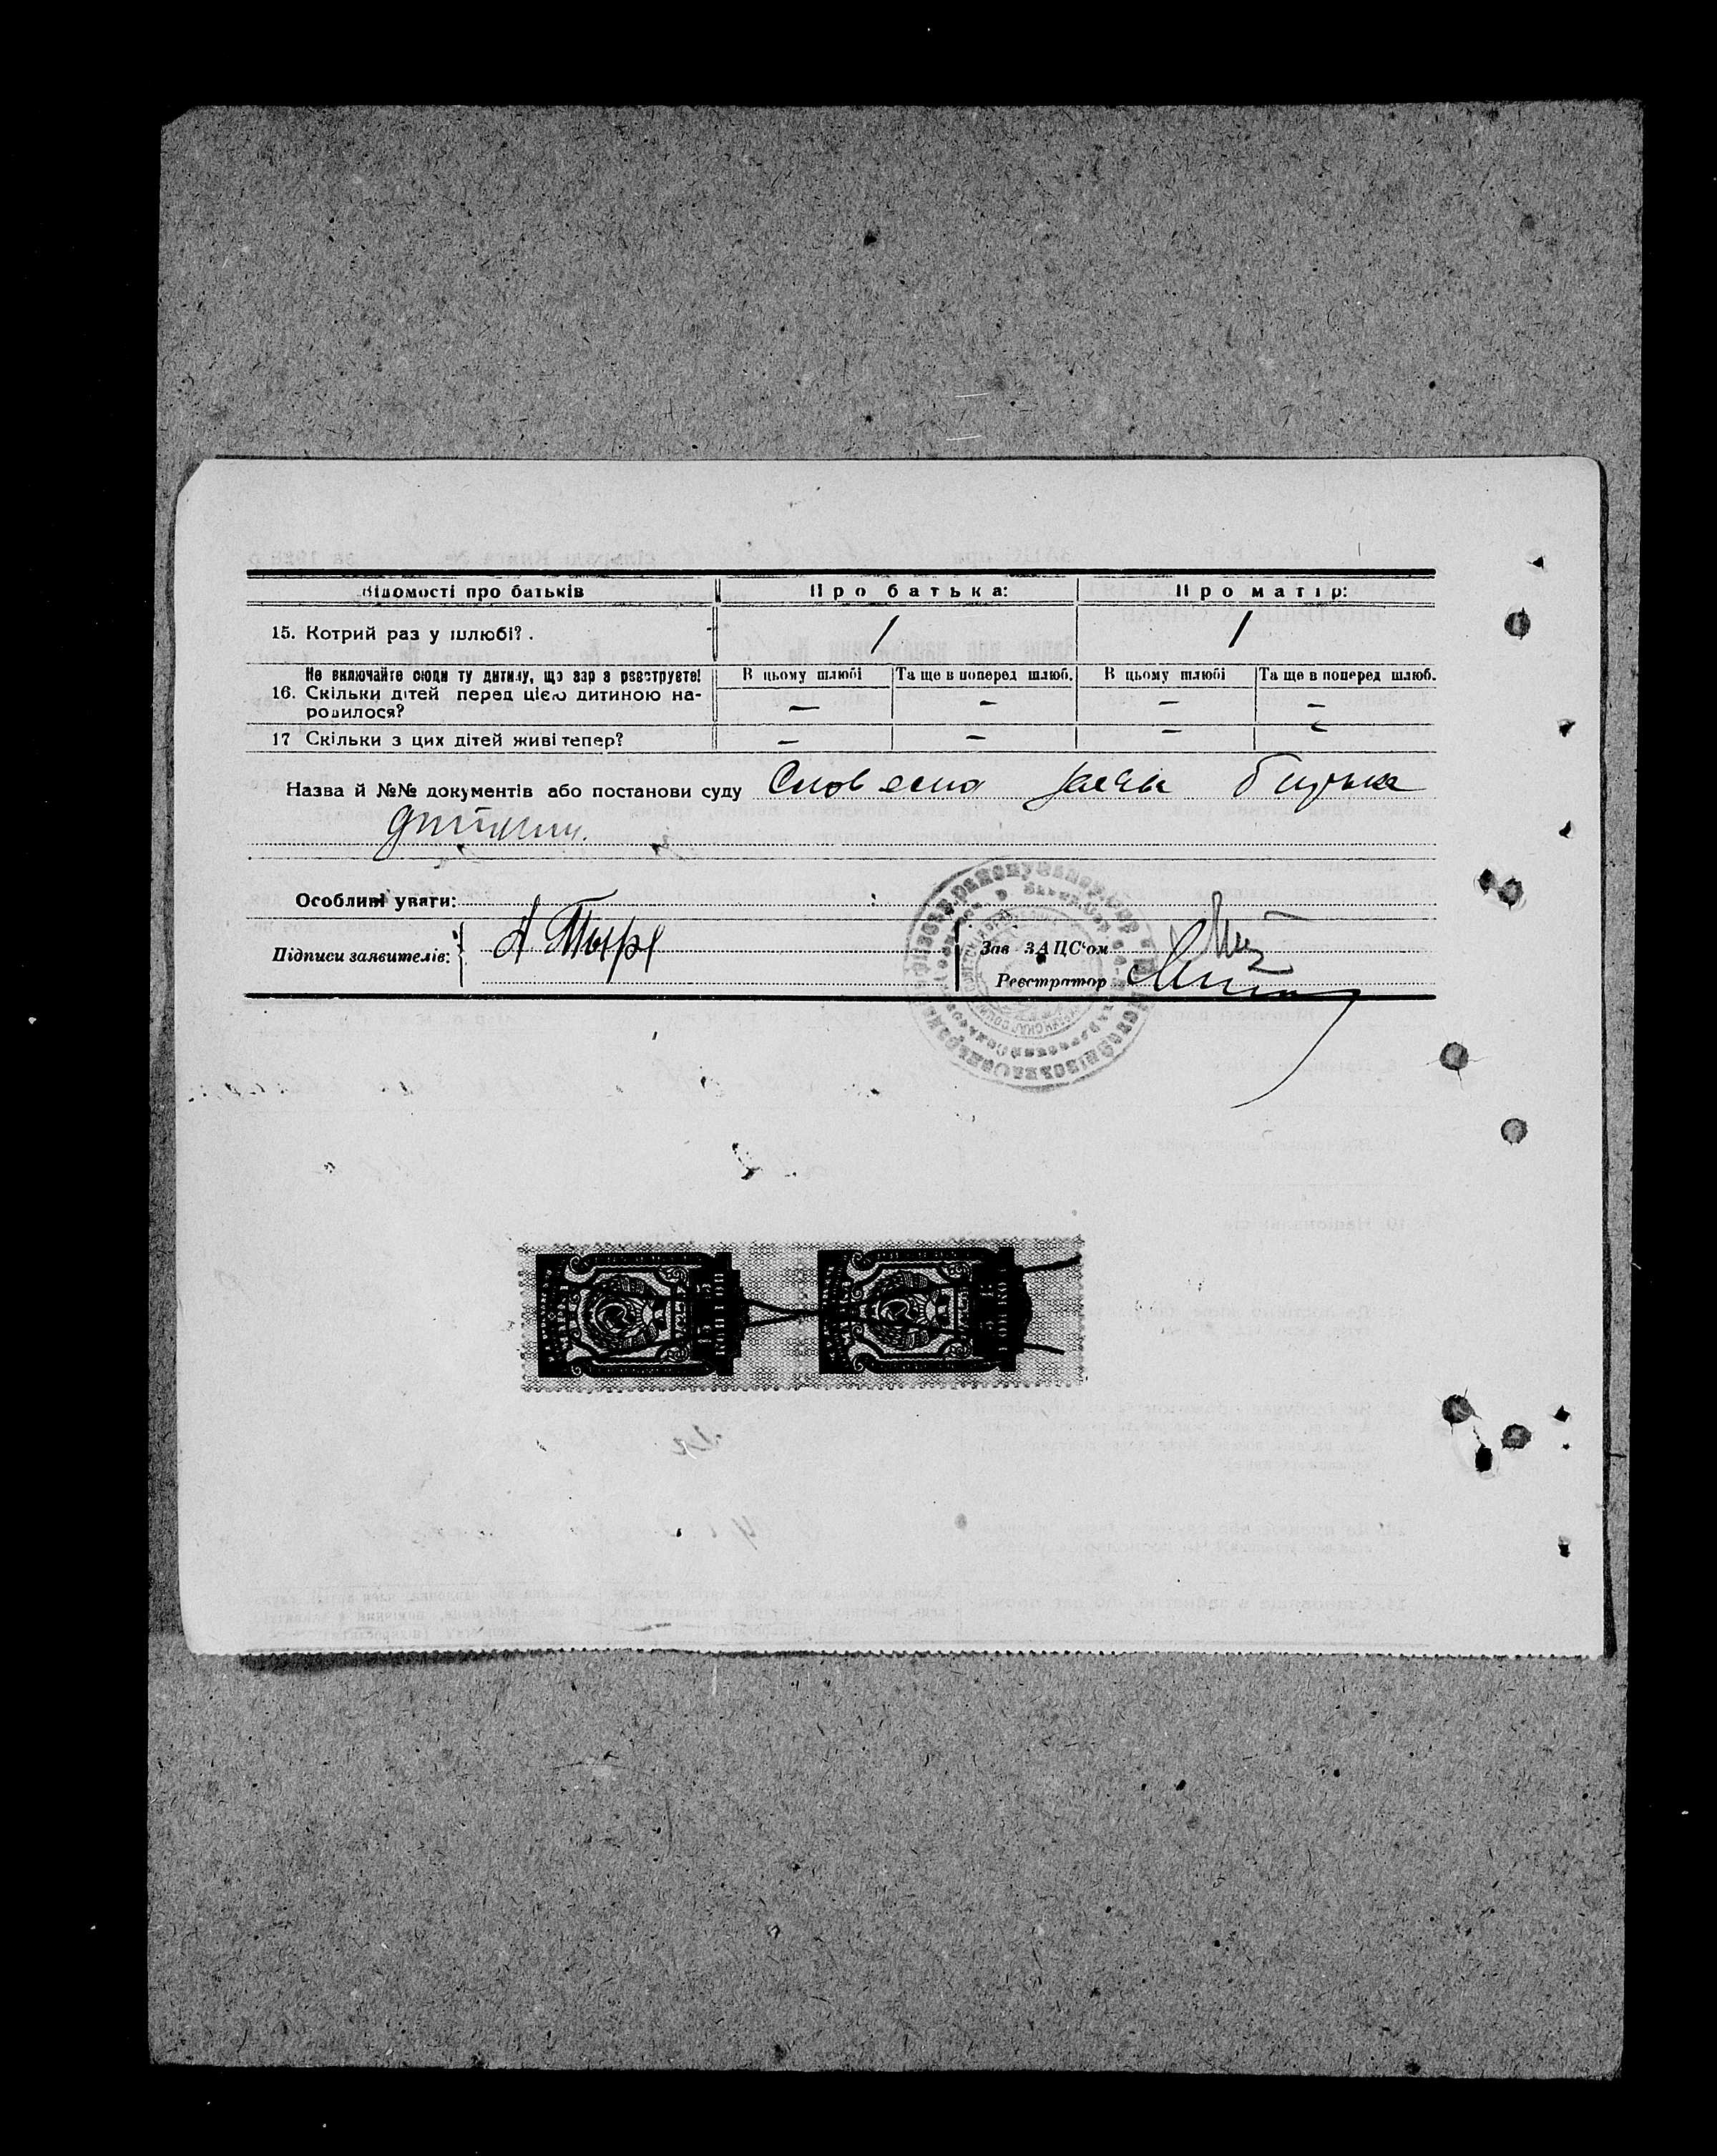 Відомості про батьків Про батька: Про матір:
15. Котрий раз у шлюбі? . 1 1
Не включайте сюди ту дитину, що зараз реєструєте! В цьому шлюбі Та ще в поперед шлюб. В цьому шлюбі Та ще в поперед шлюб.
16. Скільки дітей перед цією дитиною на-
родилося? — — — —
17 Скільки з цих дітей живі тепер? — — — —
Назва й №№ документів або постанови суду Словесна заява батька
дитини.
Особливі уваги:
Підписи заявителів: Зав ЗАПС'ом
Реєстратор